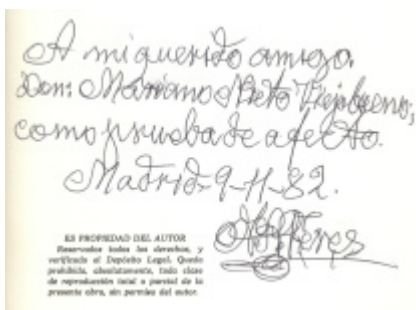 A mi querido amigo.
Don: Mariano Prieto
como prueba de afecto.
Madrid-9-11-82.
ES PROPIEDAD DEL AUTOR
Reservados todos los derechos, y
verificado el Depósito Legal. Queda
prohibida, absolutamente, toda clase
de reproducción total o parcial de la
presente obra, sin permiso del autor.